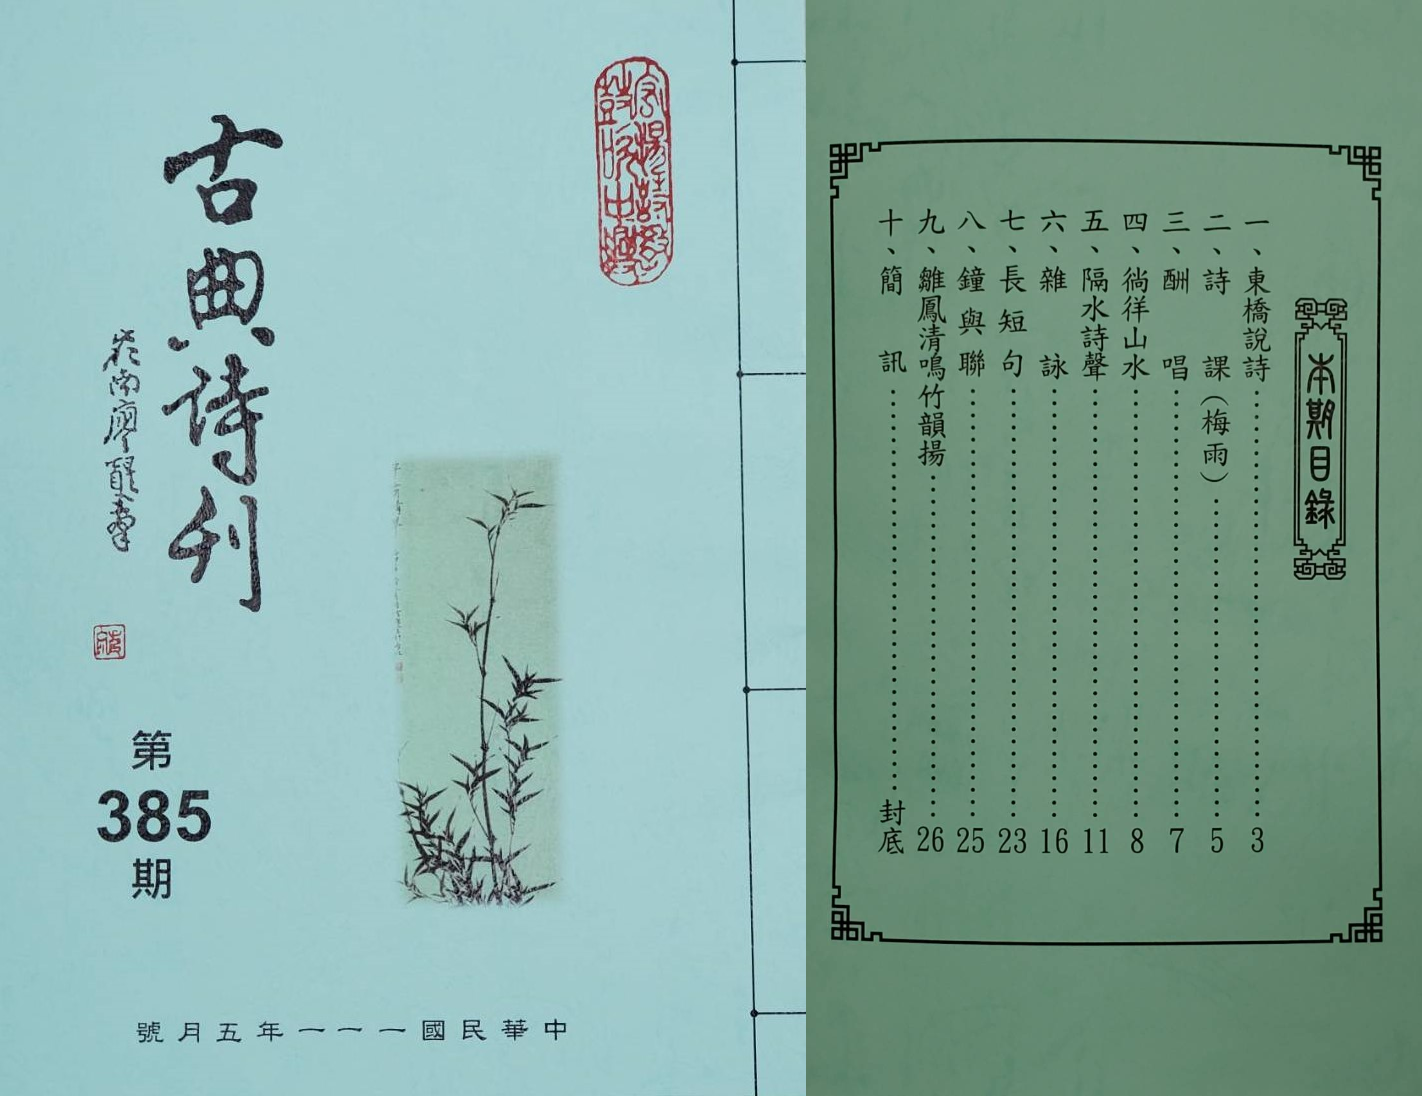 古典詩刊
第
385
期
中華民國一一一年五月號
本期目錄
一、東橋說詩⋯⋯⋯⋯⋯⋯⋯⋯3
二、詩課(梅雨)⋯⋯⋯⋯⋯⋯⋯⋯5
三、酬唱⋯⋯⋯⋯⋯⋯⋯⋯7
四、徜徉山水⋯⋯⋯⋯⋯⋯⋯⋯8
五、隔水詩聲⋯⋯⋯⋯⋯⋯⋯⋯11
六、雜詠⋯⋯⋯⋯⋯⋯⋯⋯16
七、長短句⋯⋯⋯⋯⋯⋯⋯⋯23
八、鐘與聯⋯⋯⋯⋯⋯⋯⋯⋯25
九、雛鳳清鳴竹韻揚⋯⋯⋯⋯⋯⋯⋯⋯26
十、簡訊⋯⋯⋯⋯⋯⋯⋯⋯封底